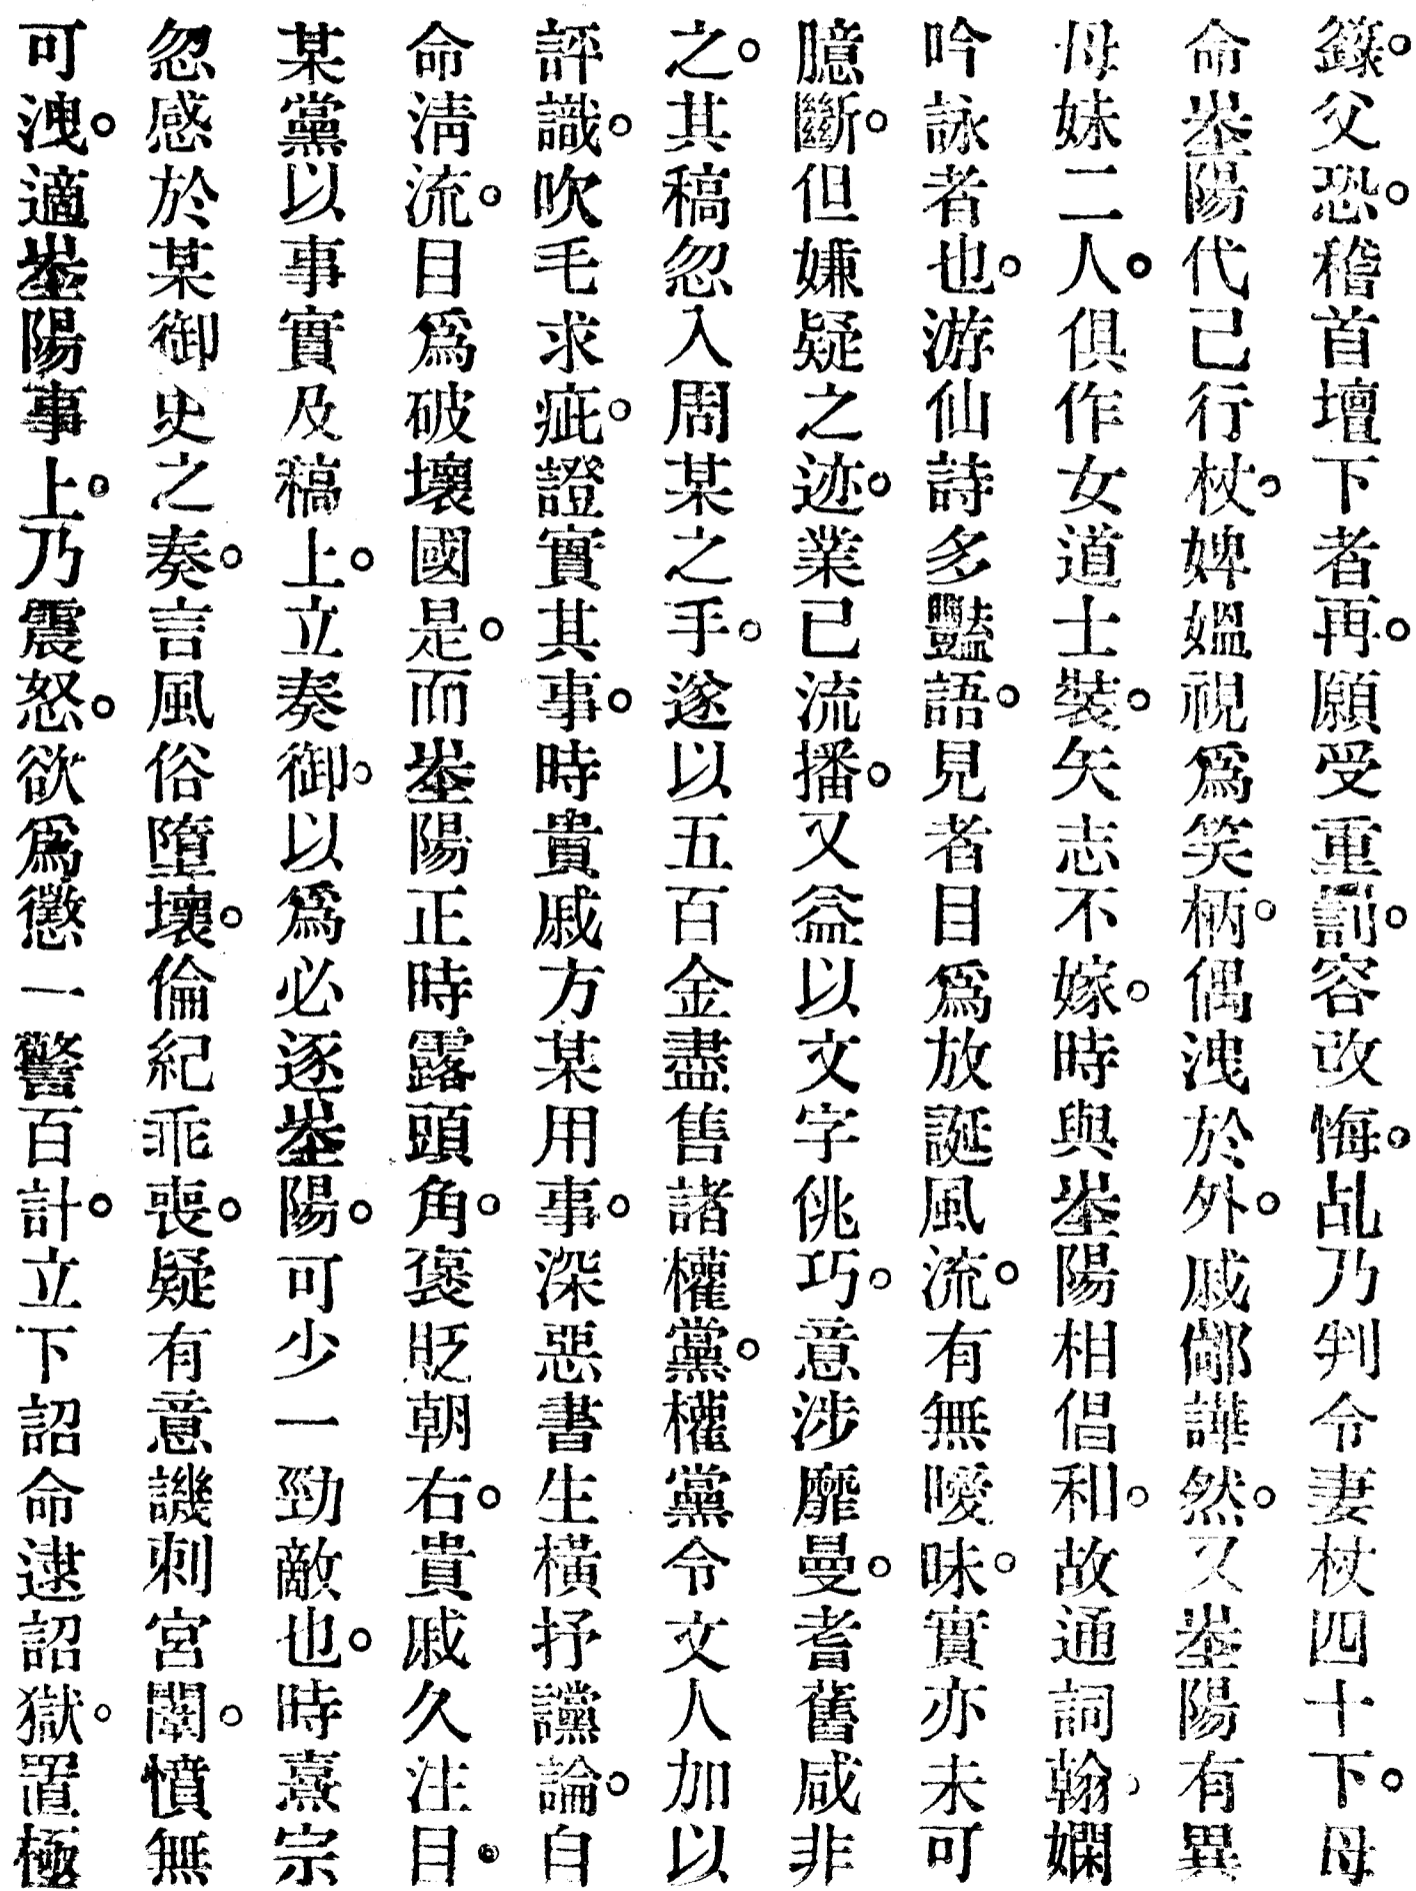 籙。父恐。稽首壇下者再。願受重罰。容改悔。乩乃判令妻杖四十下。母
命峚陽代己行杖。婢媼視爲笑柄。偶洩於外。戚鄰譁然。又峚陽有異
母妹二人。俱作女道士裝。矢志不嫁。時與峚陽相倡和。故通詞翰。嫻
吟詠者也。游仙詩多豔語。見者目爲放誕風流。有無曖昧。實亦未可
臆斷。但嫌疑之迹。業已流播。又益以文字佻巧。意涉靡曼。耆舊咸非
之。其稿忽入周某之手。遂以五百金盡售諸權黨。權黨令文人加以
評識。吹毛求疵。證實其事。時貴戚方某用事。深惡書生橫抒讜論。自
命淸流。目爲破壞國是。而峚陽正時露頭角。褒貶朝右。貴戚久注目。
某黨以事實及稿上。立奏御。以爲必逐峚陽。可少一勁敵也。時熹宗
忽感於某御史之奏。言風俗墮壞。倫紀乖喪。疑有意譏刺宮闈。憤無
可洩。適峚陽事上。乃震怒。欲爲懲一警百計。立下詔命逮詔獄。置極